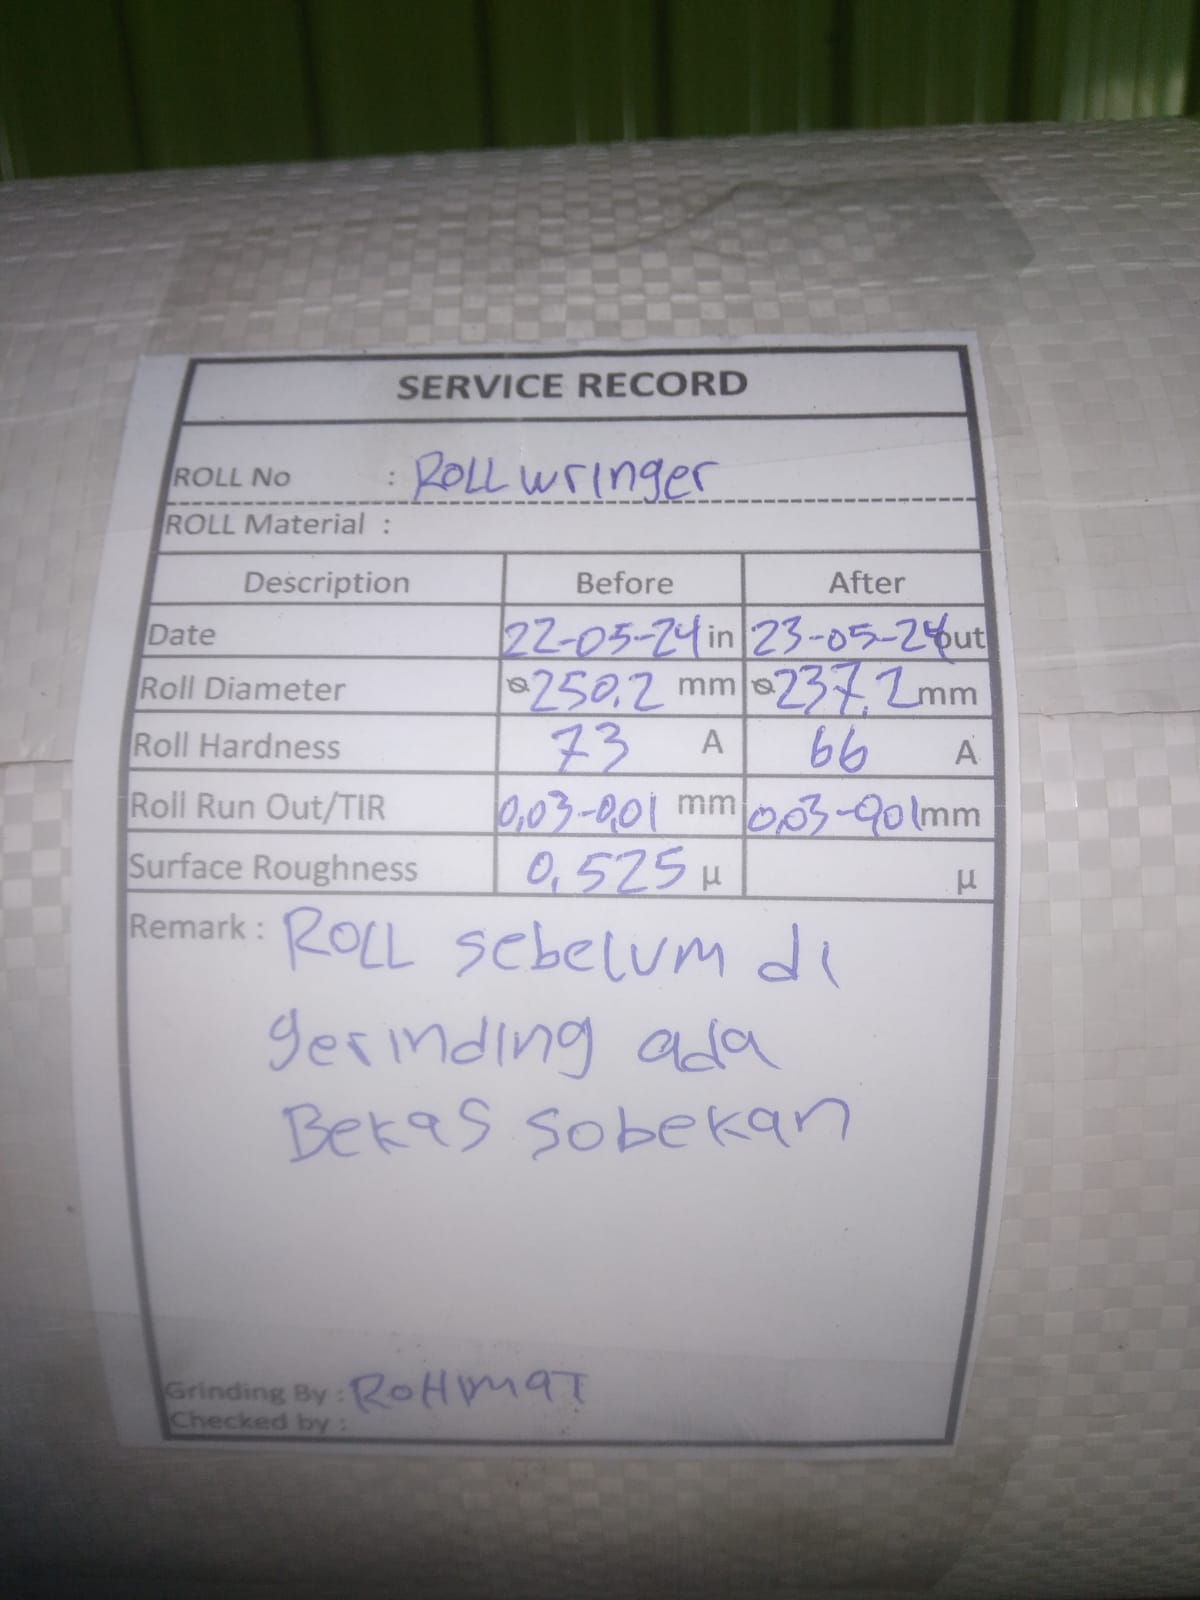 SERVICE RECORD
ROLL No : ROLL wringer
ROLL Material :
Description Before After
Date 22-05-24 in 23-05-24 out
Roll Diameter ⌀250,2 mm ⌀237,2 mm
Roll Hardness 73 A 66 A
Roll Run Out/TIR 0,03-0,01 mm 0,03-0,01 mm
Surface Roughness 0,525 μ μ
Remark : ROLL sebelum di
gerinding ada
Bekas sobekan
Grinding By : ROHMAT
Checked by :